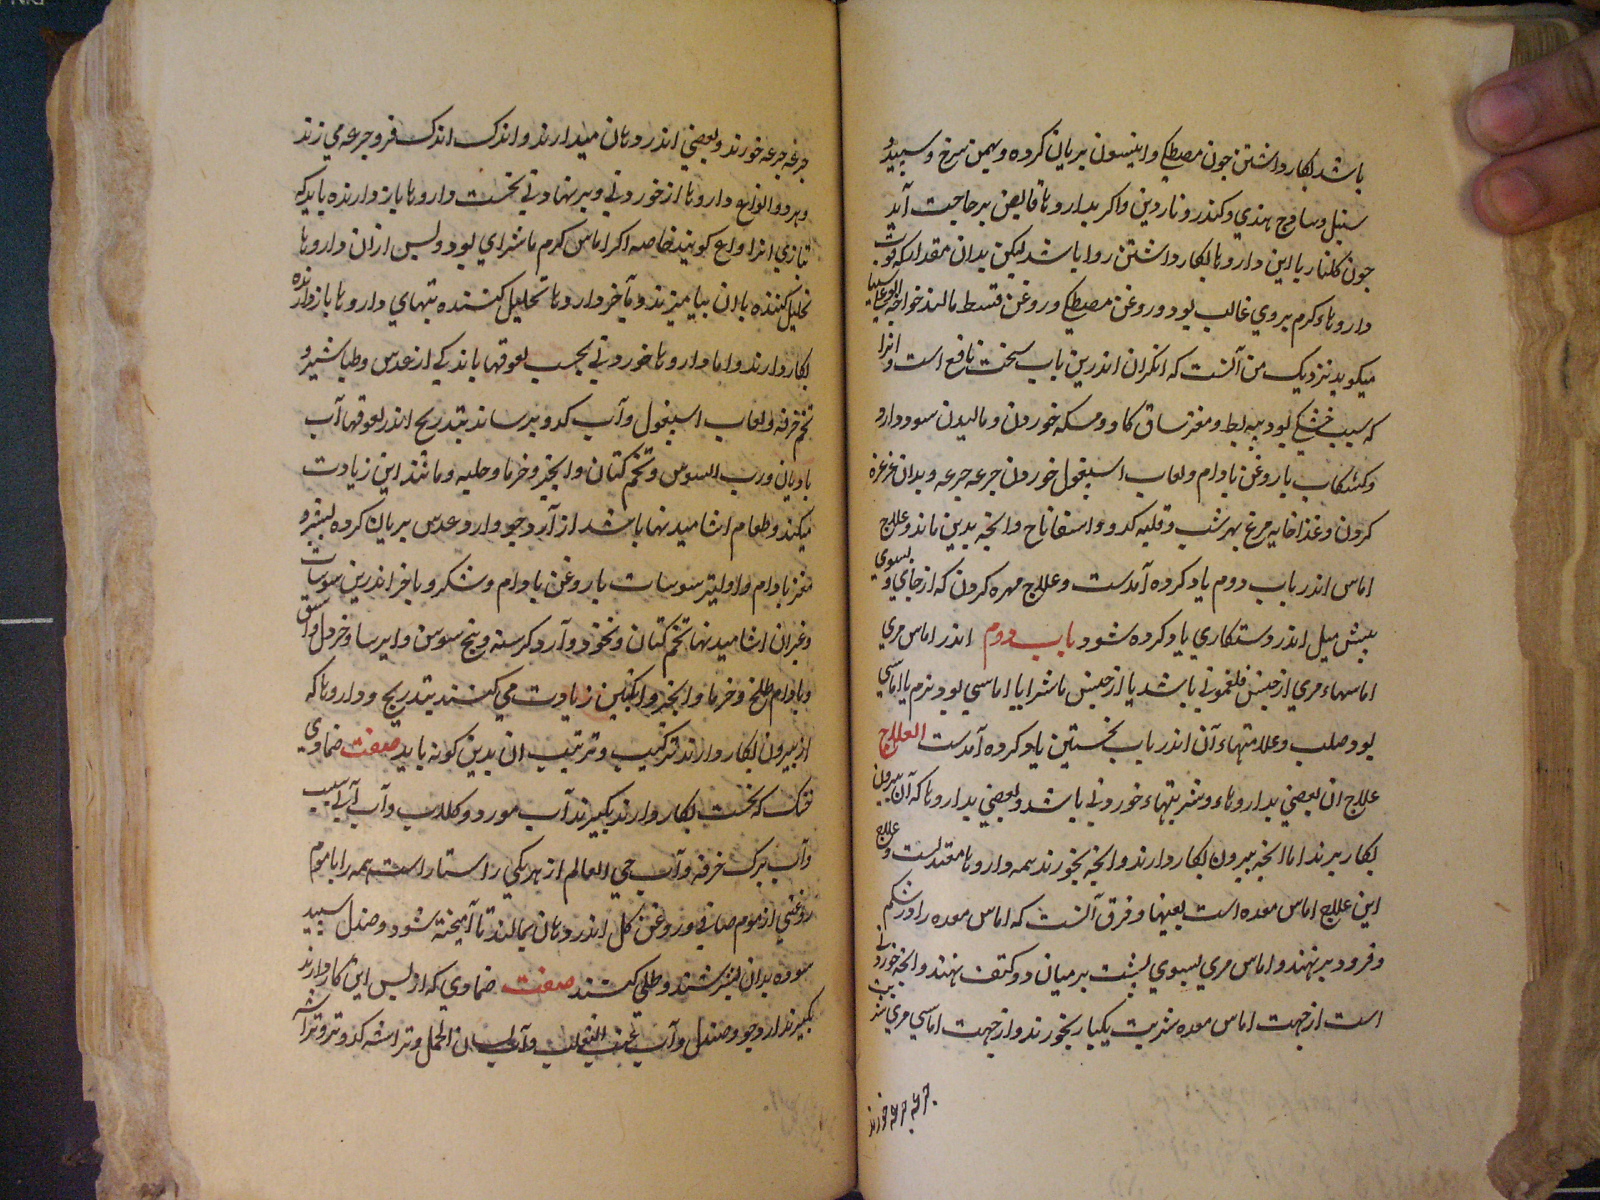 باشد بکار داشتن چون مصطکی وانیسون بریان کرده وبهمن سرخ وسپید و
سنبل وساذج هندی وکندر وناردین واکر بداروها قابض بر حاجت آید
چون کلنار با این داروها بکار داشتن روا باشد لیکن بدان مقدار که قوت
داروهاء کرم بروی غالب بود وروغن مصطکی وروغن قسط مالند خواجه ابوعلی سینا
میکوید نزدیک من آنست که انکزان اندرین باب سخت نافع است وانرا
که سبب خشکی بود پیه بط ومغز ساق کاو ومسکه خوردن ومالیدن سود دارد
وکشکاب با روغن بادام ولعاب اسپغول خوردن جرعه جرعه وبدان غرغره
کردن وغذا خایه مرغ نیم برشت وقلیه کدو واسفاناخ وانچه بدین ماند وعلاج
اماس اندر باب دوم یاد کرده آمدست وعلاج مهره کردن که از جای بسوی
پیش میل اندر دستکاری یاد کرده شود باب دوم اندر اماس مری
اماسهاء مری از جنس فلغمونی باشد یا از جنس ماشرا یا اماسی بود نرم یا اماسی
بود صلب وعلامتهاء آن اندر باب نخستین یاد کرده آمدست العلاج
علاج ان بعضی بداروهاء وشربتهاء خوردنی باشد وبعضی بداروها که آن بیرون
بکار برند اما انچه بیرون بکار دارند وانچه بخورند همه داروها معتدلست وعلاج
این علاج اماس معده است بعینها وفرق آنست که اماس معده را در شکم
وفرود بر نهند واماس مری بسوی پشت بر میان دو کتف نهند وانچه خوردنی
است از جهت اماس معده شربت یکبار بخورند واز جهت اماسی مری شربت
جرعه جرعه خورند
جرعه جرعه خورند وبعضی اندر دهان میدارند واندک اندک فرو جرعه می زند
وهر دو انواع داروها از خوردنی وبر نهادنی نخست داروها باز دارنده باید که
بتازی انرا رادع کویند خاصه اکر اماس کرم ماشرای بود وپس ازان داروها
تحلیل کننده با ان بیامیزند وبآخر داروها تحلیل کننده تنهای داروها باز دارنده
بکار دارند واما داروها خوردنی بحسب لعوقها باید کی از عدس وطباشیر و
تخم خرفه ولعاب اسپغول وآب کدو برساند بتدریج اندر لعوقها آب
بادیان ورب السوس وتخم کتان وانجیر وخرما وحلبه ومانند این زیادت
میکند وطعام اشامیدنیها باشد از آرد جو وارد عدس بریان کرده بشیر و
مغز بادام واولیتر سوسات با روغن بادام وشکر وباخر اندرین سوسات
وغیر ان اشامیدنیها تخم کتان ونخود وآرد کرسنه وبیخ سوسن وایرسا وخردل واشق
وبادام طلخ وخرما وانجیر وانکبین زیادت می کنند بتدریج وداروها که
از بیرون بکار دارند ترکیب وترتیب ان بدین کونه باید صفت ضمادی
خنک که نخست بکار دارند بکیرند آب مورد وکلاب وآب آبی وسیب
وآب برک خرفه وآب حی العالم از هر یکی راستاراست همه را با موم
روغنی از موم صافی وروغن کل اندر دهان بمالند تا آمیخته شود وصندل سپید
سوده بدان بسرشند وطلی کنند صفت ضمادی که از پس این بکار دارند
بکیرند ارد جو وصندل وآب عنب الثعلب وآب لسان الحمل وتراشه کدو تر وتراشه